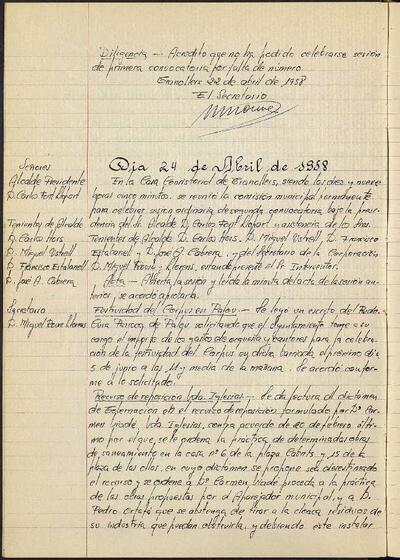 Diligencia — Acredito que no ha podido celebrarse sesión
de primera convocatoria por falta de número.
Granollers 22 de abril de 1958
El Secretario
Día 24 de Abril de 1958
Señores
Alcalde Presidente
D. Carlos Font Llopart
Tenientes de Alcalde
D. Carlos Hors
D. Miguel Ustrell
D. Francisco Estabanell
D. José A. Cabrera
Secretario
D. Miguel Roura Llorens
En la Casa Consistorial de Granollers, siendo las diez y nueve
horas cinco minutos, se reunió la comisión municipal permanente
para celebrar sesión ordinaria de segunda convocatoria, bajo la presi-
dencia del Sr. Alcalde D. Carlos Font Llopart y asistencia de los Sres.
Tenientes de Alcalde D. Carlos Hors, D. Miguel Ustrell, D. Francisco
Estabanell y D. José A. Cabrera, y del Secretario de la Corporación
D. Miguel Roura y Llorens, estando presente el Sr. Interventor.
Acta — Abierta la sesión y leída la minuta del acta de la sesión ante-
rior, se acordó aprobarla.
Festividad del Corpus en Palou — Se leyó un escrito del Rvdo.
Cura Párroco de Palou solicitando que el Ayuntamiento tome a su
cargo el importe de los gastos de orquesta y cantores para la celebra-
ción de la festividad del Corpus en dicha barriada el próximo día
5 de junio a las 11 y media de la mañana. Se acordó confor-
me a lo solicitado.
Recurso de reposición Vda. Iglesias — Se da lectura al dictamen
de Gobernación en el recurso de reposición formulado por Dª Car-
men Viadé, Vda. Iglesias, contra acuerdo de 20 de febrero últi-
mo por el que, se le ordena la práctica de determinadas obras
de saneamiento en la casa nº 6 de la plaza Cabrits, y 15 de la
plaza de las ollas, en cuyo dictamen se propone sea desestimado
el recurso y se ordene a Dª Carmen Viadé proceda a la práctica
de las obras propuestas por el Aparejador municipal, y a D.
Pedro se abstenga de tirar a la cloaca residuos de
su industria que puedan obstruirla, y debiendo éste instalar